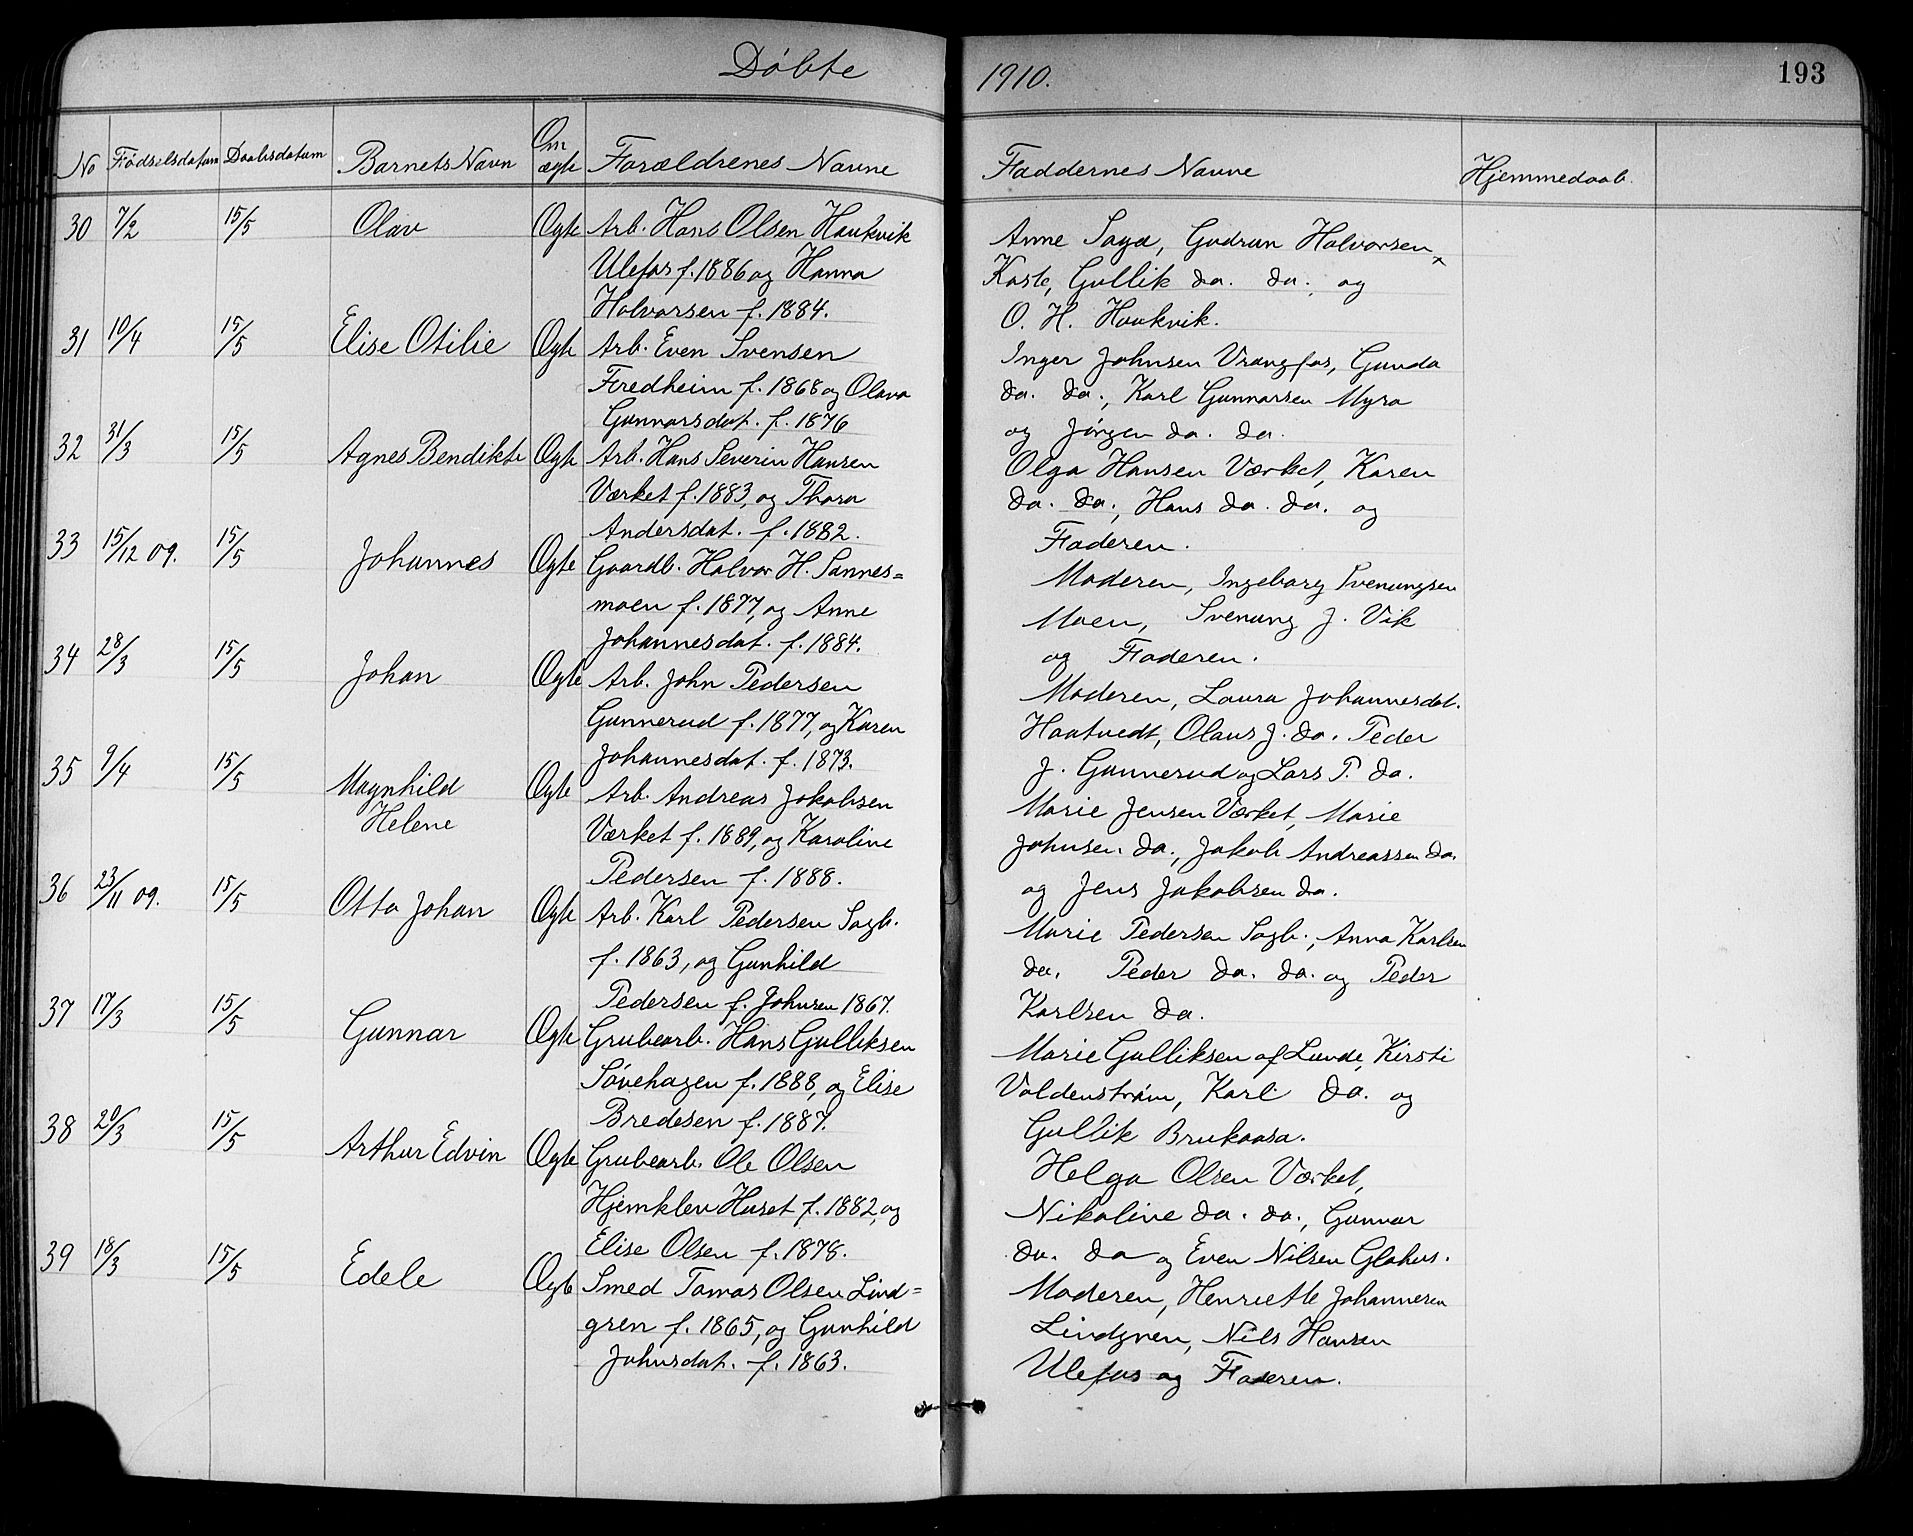 Døbte 1910. 193
No Fødselsdatum Daabsdatum Barnets Navn Om ægte Forældrenes Navne Faddernes Navne Hjemmedaab.
30 7/2 15/5 Olav Ægte Arb. Hans Olsen Haukvik
Ulefos f. 1886 og Hanna
Halvorsen f. 1884.
Anne Saga, Gudrun Halvorsen
Kaste, Gullik do. do. og
O. H. Haukvik.
31 10/4 15/5 Elise Otilie Ægte Arb. Even Svensen
Fredheim f. 1868 og Olava
Gunnarsdat. f. 1876
Inger Johnsen Vrangfos, Gunda
do. do., Karl Gunnarsen Myra
og Jørgen do. do.
32 31/3 15/5 Agnes Bendikte Ægte Arb. Hans Severin Hansen
Værket f. 1883, og Thora
Andersdat. f. 1882.
Olga Hansen Værket, Karen
do. do., Hans do. do. og
Faderen.
33 15/12 09. 15/5 Johannes Ægte Gaardb. Halvor H. Sannes=
moen f. 1877, og Anne
Johannesdat. f. 1884.
Moderen, Ingeborg Svenungsen
Moen, Svenung J. Vik
og Faderen.
34 28/3 15/5 Johan Ægte Arb. John Pedersen
Gunnerud f. 1877, og Karen
Johannesdat. f. 1873.
Moderen, Laura Johannesdat.
Haatvedt, Olaus J. do. Peder
J. Gunnerud og Lars P. do.
35 9/4 15/5 Magnhild
Helene Ægte Arb. Andreas Jakobsen
Værket f. 1889, og Karoline
Pedersen f. 1888.
Marie Jensen Værket, Marie
Johnsen do., Jakob Andreassen do.
og Jens Jakobsen do.
36 23/11 09. 15/5 Otto Johan Ægte Arb. Karl Pedersen Sagb.
f. 1863, og Gunhild
Pedersen f. Johnsen 1867.
Marie Pedersen Sagb., Anna Karlsen
do. Peder do. do. og Peder
Karlsen do.
37 17/3 15/5 Gunnar Ægte Grubearb. Hans Gulliksen
Søvehagen f. 1888, og Elise
Bredesen f. 1887.
Marie Gulliksen af Lunde, Kirsti
Valdenstrøm, Karl do. og
Gullik Brukaasa.
38 20/3 15/5 Arthur Edvin Ægte Grubearb. Ole Olsen
Hjemklev Huset f. 1882, og
Elise Olsen f. 1878.
Helga Olsen Værket,
Nikoline do. do., Gunnar
do. do og Even Nilsen Glahus.
39 18/3 15/5 Edele Ægte Smed Tomas Olsen Lind=
gren f. 1865, og Gunhild
Johnsdat. f. 1863.
Moderen, Henriette Johannesen
Lindgren, Nils Hansen
Ulefos og Faderen.